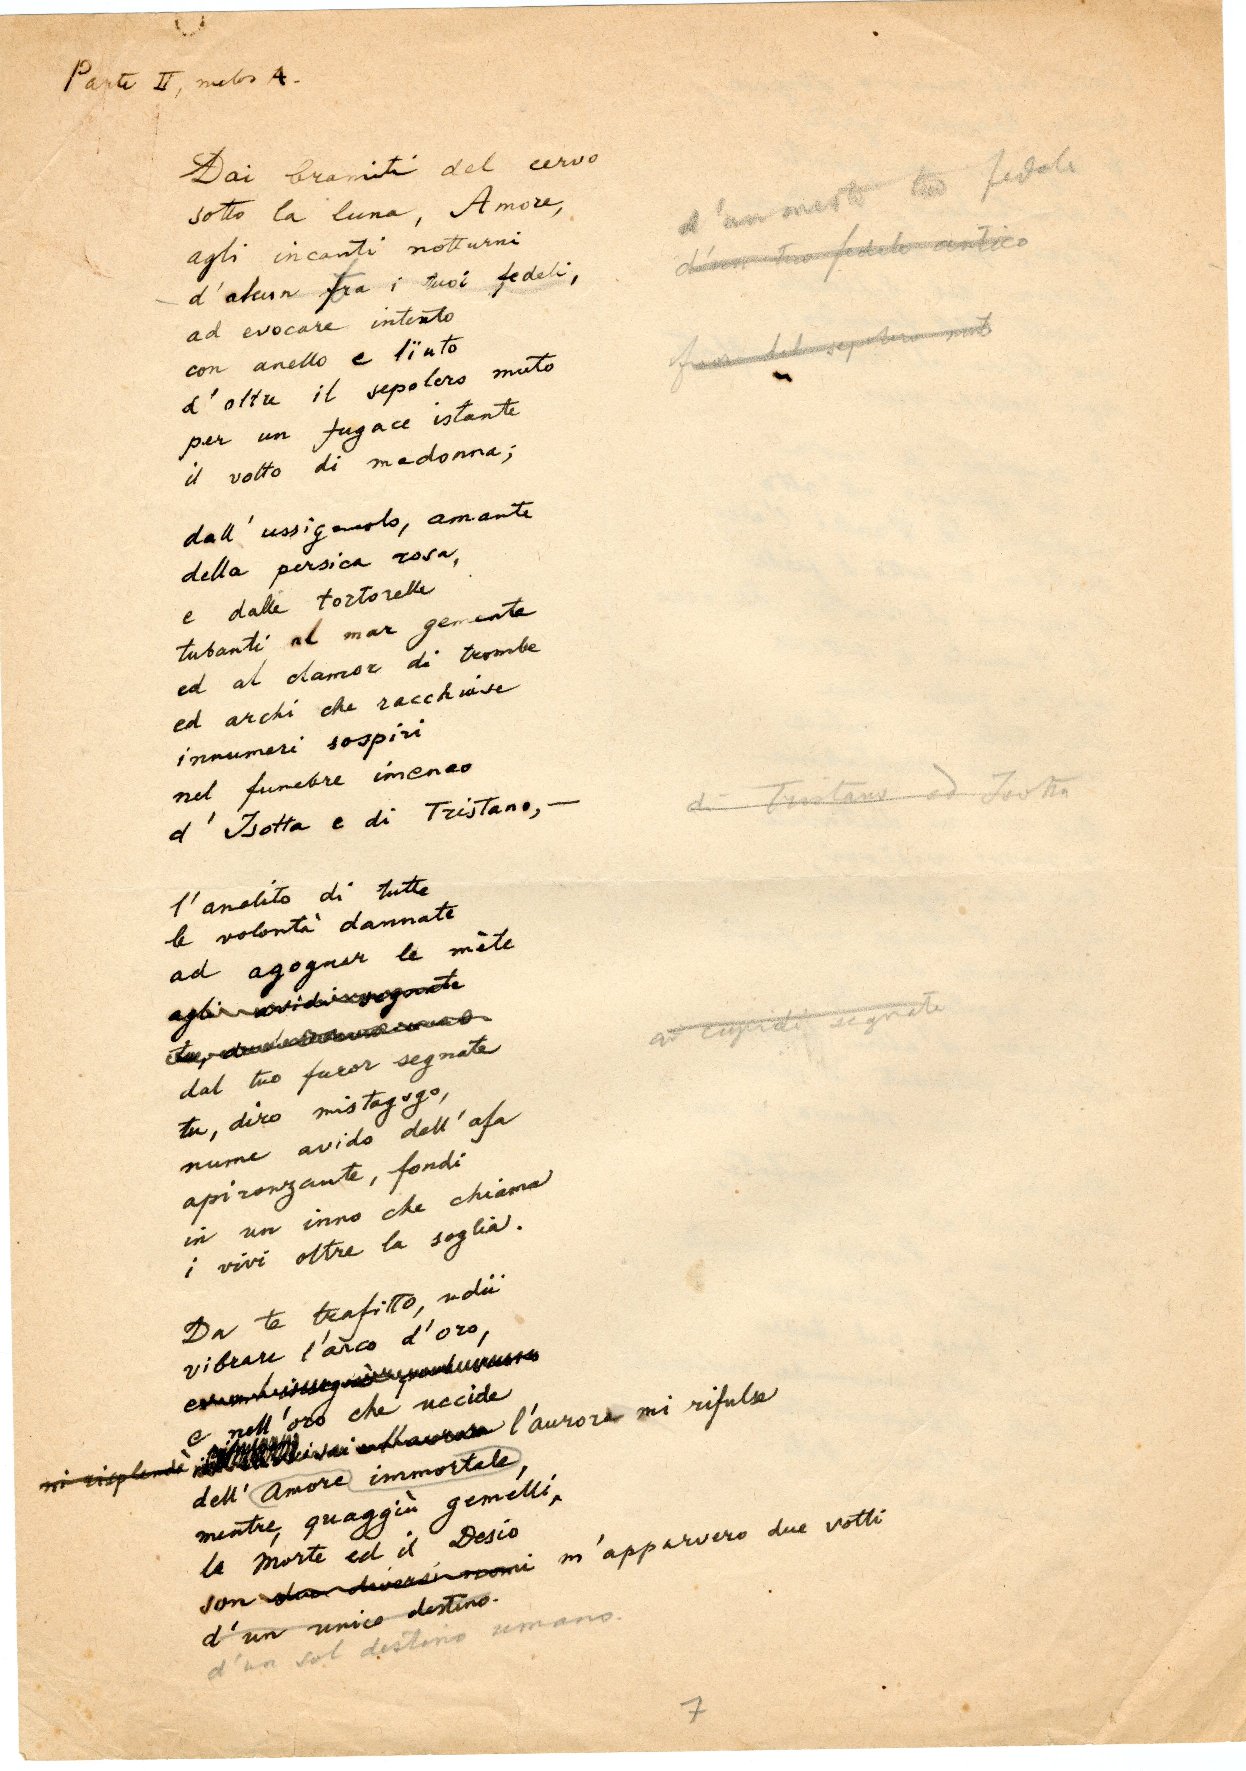 Parte II, melos A.
Dai bramiti del cervo
sotto la luna, Amore,
agli incanti notturni
d'alcun fra i tuoi fedeli,
ad evocare intento
con anello e lïuto
d'oltre il sepolcro muto
per un fugace istante
il volto di madonna;
d'un mesto tuo fedele
d'un tuo fedele antico
fuor del sepolcro muto
dall'ussignolo, amante
della persica rosa,
e dalle tortorelle
tubanti al mar gemente
ed al clamor di trombe
ed archi che racchiuse
innumeri sospiri
nel funebre imeneo
d'Isotta e di Tristano,—
di Tristano ed Isotta
l'anelito di tutte
le volontà dannate
ad agognar le mète
agli avidi segnate
dal tuo furor segnate
tu, diro mistagogo,
nume avido dell'afa
apironzante, fondi
in un inno che chiama
i vivi oltre la soglia.
ai cupidi segnate
Da te trafitto, udii
vibrare l'arco d'oro,
e nell'oro che uccide
mi risplendé l'aurora mi rifulse
dell'Amore immortale,
mentre, quaggiù gemelli,
la Morte ed il Desio
son due diversi nomi m'apparvero due volti
d'un unico destino.
d'un sol destino umano.
7